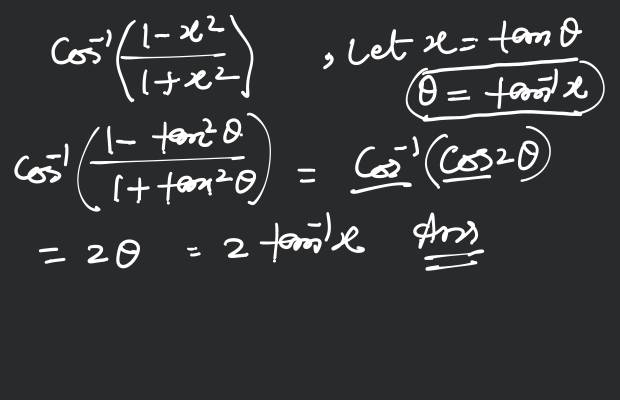 Cos⁻¹((1-x²)/(1+x²)) , Let x = tan θ
θ = tan⁻¹x
Cos⁻¹((1-tan²θ)/(1+tan²θ)) = Cos⁻¹(Cos2θ)
= 2θ = 2 tan⁻¹x Ans